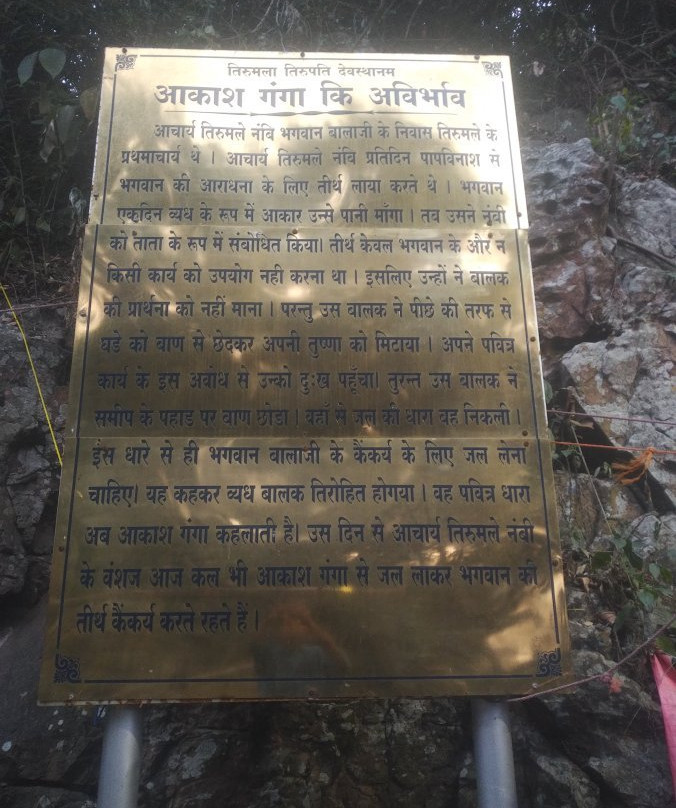 तिरुमला तिरुपति देवस्थानम
आकाश गंगा कि अविर्भाव
आचार्य तिरुमले नंबि भगवान बालाजी के निवास तिरुमले के
प्रथमाचार्य थे । आचार्य तिरुमले नंबि प्रतिदिन पापविनाश से
भगवान की आराधना के लिए तीर्थ लाया करते थे । भगवान
एकदिन व्यध के रूप में आकार उन्से पानी माँगा । तब उसने नंबी
को ताता के रूप में संबोधित किया। तीर्थ केवल भगवान के और न
किसी कार्य को उपयोग नही करना था । इसलिए उन्हों ने बालक
की प्रार्थना को नहीं माना । परन्तु उस बालक ने पीछे की तरफ से
घडे को बाण से छेदकर अपनी तुष्णा को मिटाया । अपने पवित्र
कार्य के इस अवोध से उनको दुःख पहूँचा। तुरन्त उस बालक ने
समीप के पहाड पर बाण छोडा । वहाँ से जल की धारा बह निकली ।
इस धारे से ही भगवान बालाजी के कैंकर्य के लिए जल लेना
चाहिए। यह कहकर व्यध बालक तिरोहित होगया । वह पवित्र धारा
अब आकाश गंगा कहलाती है। उस दिन से आचार्य तिरुमले नंबी
के वंशज आज कल भी आकाश गंगा से जल लाकर भगवान की
तीर्थ कैंकर्य करते रहते हैं ।